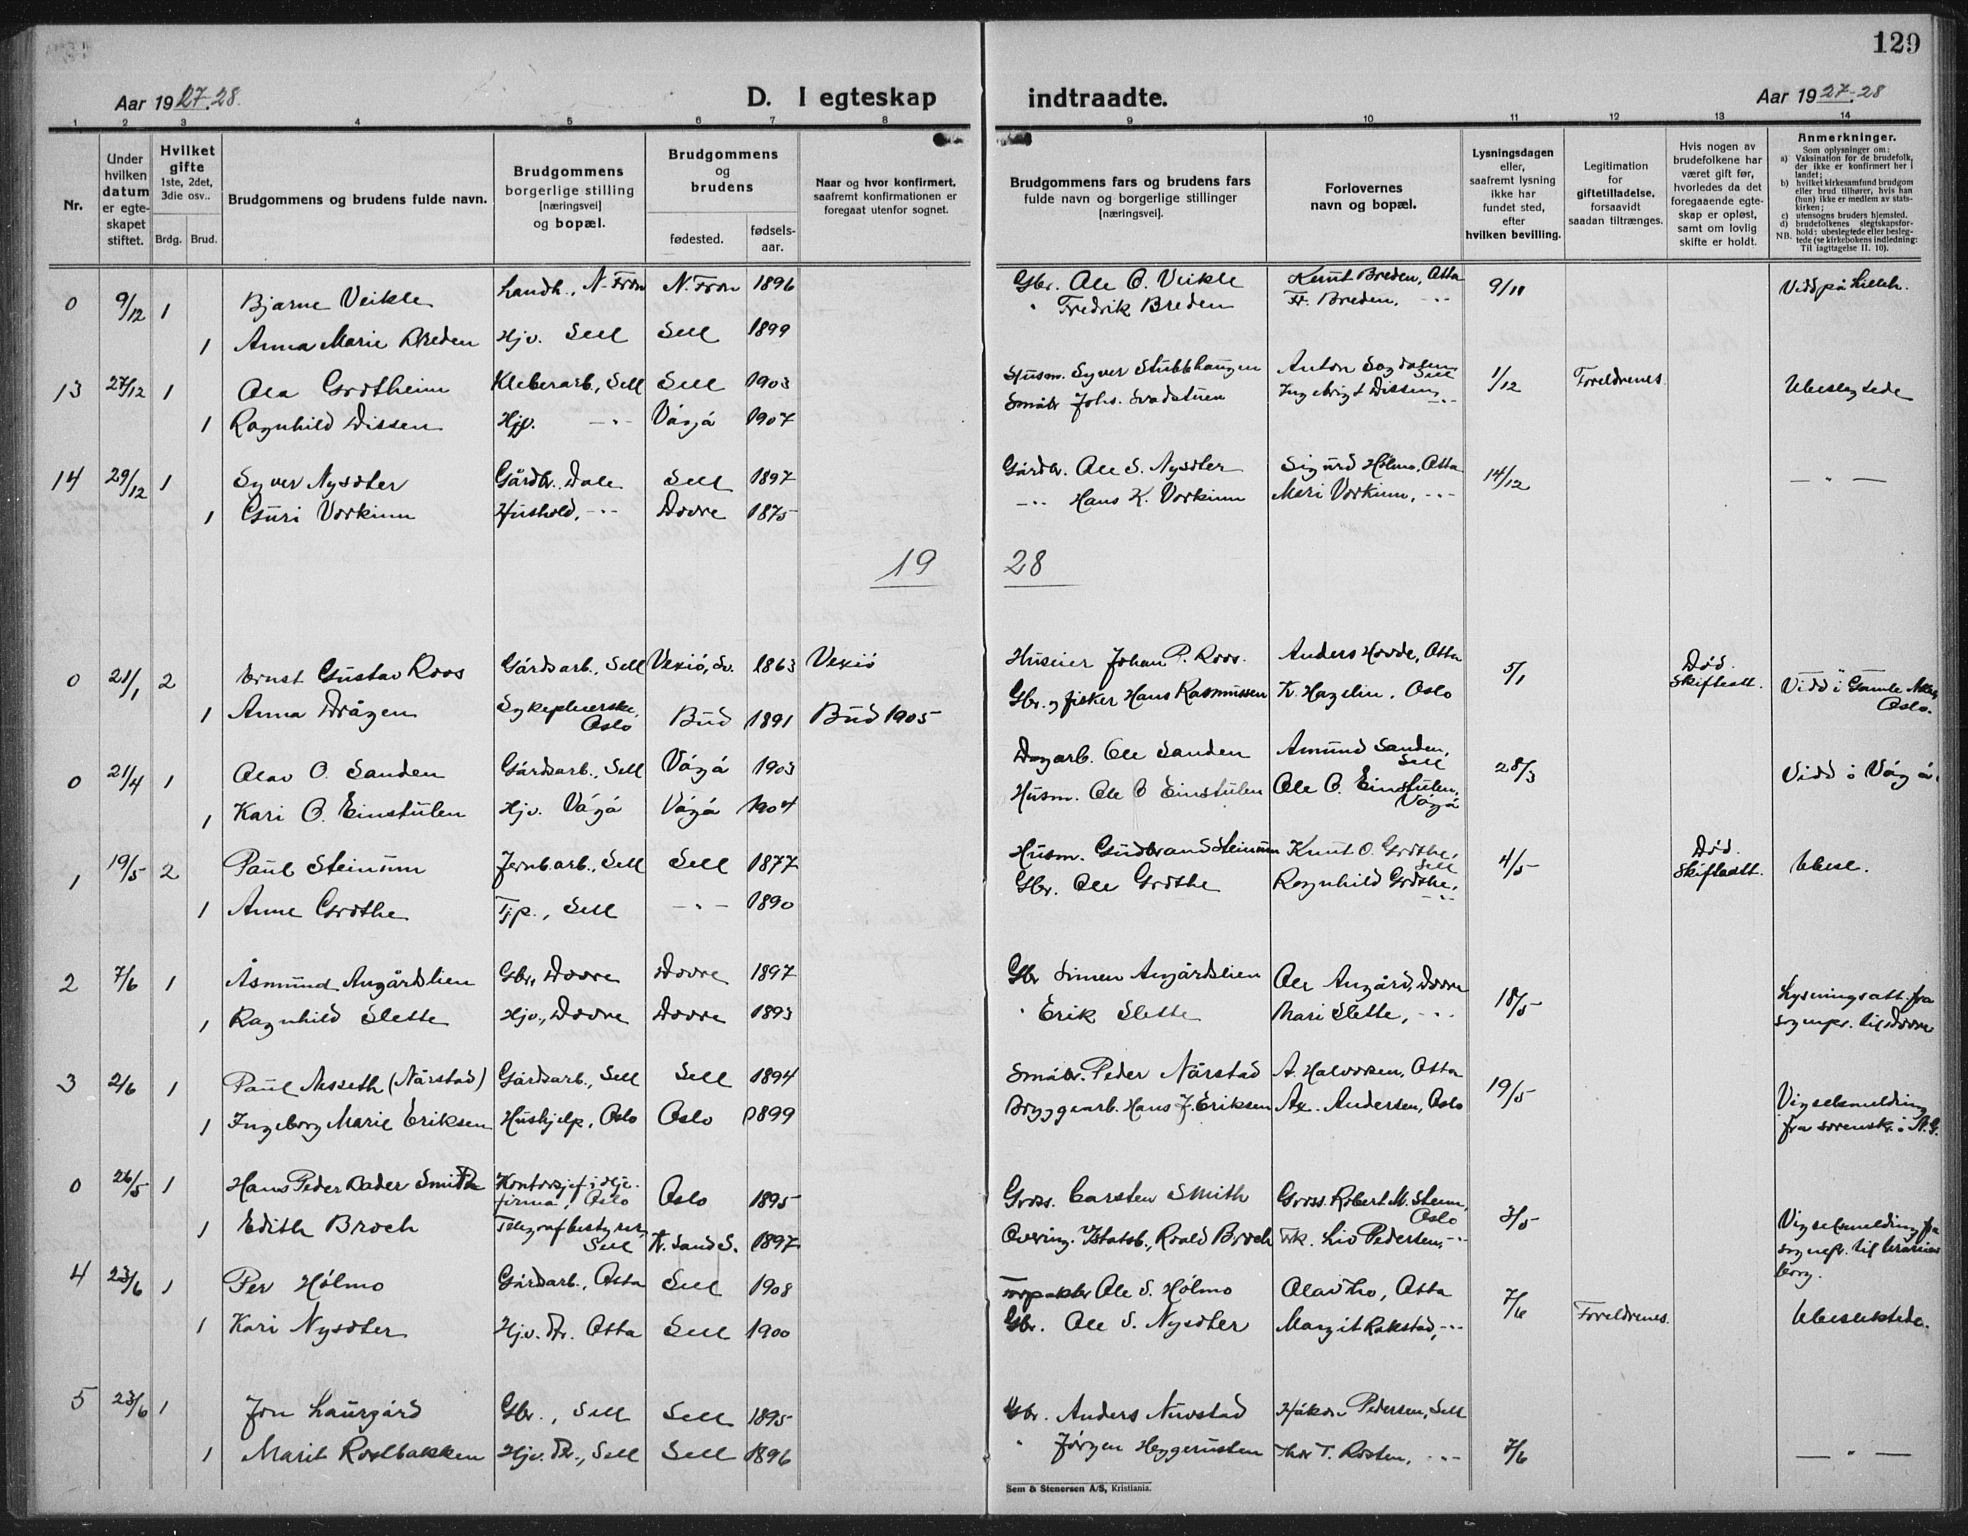 129
Aar 1927-28. D. I egteskap indtraadte. Aar 1927-28
1 2 3 4 5 6 7 8 9 10 11 12 13 14
Nr.
Under hvilken datum er egteskapet stiftet.
Hvilket gifte 1ste, 2det, 3die osv..
Brdg. Brud.
Brudgommens og brudens fulde navn.
Brudgommens borgerlige stilling [næringsvei] og bopæl.
Brudgommens og brudens
fødested. fødselsaar.
Naar og hvor konfirmert, saafremt konfirmationen er foregaat utenfor sognet.
Brudgommens fars og brudens fars fulde navn og borgerlige stillinger [næringsvei].
Forlovernes navn og bopæl.
Lysningsdagen eller, saafremt lysning ikke har fundet sted, efter hvilken bevilling.
Legitimation for giftetilladelse, forsaavidt saadan tiltrænges.
Hvis nogen av brudefolkene har været gift før, hvorledes da det foregaaende egteskap er opløst, samt om lovlig skifte er holdt.
Anmerkninger.
Som oplysninger om:
a) Vaksination for de brudefolk, der ikke er konfirmert her i landet;
b) hvilket kirkesamfund brudgom eller brud tilhører, hvis han (hun) ikke er medlem av statskirken;
c) utensogns bruders hjemsted.
d) brudefolkenes slegtskapsforhold: ubeslegtede eller beslegtede (se kirkebokens indledning: Til iagttagelse II. 10).
NB.
0 9/12 1 Bjarne Veikle Landh., N-Fron N. Fron 1896 Gbr. Ole O. Veikle Knut Breden, Otta 9/11 Vidd på Lilleh.
1 Anna Marie Breden Hjv. Sell Sell 1899 " Fredrik Breden Fr. Breden, -"-
13 27/12 1 Ola Grøtheim Kleberarb., Sell Sell 1903 Husm. Syver Stubbhaugen Anton Sagdalen Sell 1/12 Foreldrenes Ubeslegtede
1 Ragnhild Dissen Hjp. -"- Vågå 1907 Småbr. Johs. Ingebrigt Dissen, -"-
14 29/12 1 Syver Nysæter Gårdbr. Dale Sell 1897 Gårdbr. Ole S. Nysæter Sigurd Hølmo, Otta 14/12 - " -
1 Guri Vorkinn Hushold., -"- Dovre 1875 -"- Hans K. Vorkinn Mari Vorkinn, -"-
19 28
0 21/1 2 Ernst Gustav Roos Gårdsarb., Sell Vexiö, Sv. 1863 Vexiö Huseier Johan P. Roos. Anders Hovde, Otta 5/1 Død. Skifteatt. Vidd i Gamle Aker, Oslo.
1 Anna Drågen Sykepleierske, Oslo Bud 1891 Bud 1905 Gbr. og fisker Hans Rasmussen Tr. Hagelin, Oslo
0 21/4 1 Olav O. Sanden Gårdsarb., Sell Vågå 1903 Dagarb. Ole Sanden Amund Sanden, Sell 28/3 Vidd i Vågå
1 Kari O. Einstulen Hjv. Vågå Vågå 1904 Husm. Ole O Einstulen Ole O. Einstulen, Vågå
1 19/5 2 Paul Steinum Jernb.arb., Sell Sell 1877 Husm. Gudbrand Steinum Knut O. Grøthe, Sell 4/5 Død. Skifteatt. Ubesl.
1 Anne Grøthe Tjp., Sell -"- 1890 Gbr. Ole Grøthe Ragnhild Grøthe, -"-
2 7/6 1 Åsmund Angårdslien Gbr., Dovre Dovre 1897 Gbr Simen Angårdslien Ole Angård, Dovre 18/5 Lysningsatt. fra sognepr. til Dovre
1 Ragnhild Slette Hjv., Dovre Dovre 1893 " Erik Slette Mari Slette, -"-
3 2/6 1 Paul Aasseth (Nårstad) Gårdsarb., Sell Sell 1894 Småbr. Peder Nårstad A. Halvorsen, Otta 19/5 Vigselsmelding fra sorenskr. i N.G.
1 Ingeborg Marie Eriksen Hushjelp, Oslo Oslo 1899 Bryggearb. Hans J. Eriksen Ax. Andersen, Oslo
0 26/5 1 Hans Peder Rader Smith Kontorsjef i oljefirma, Oslo Oslo 1895 Gross. Carsten Smith Gross. Robert M. Steen, Oslo 3/5 Vigselsmelding fra sognepr. til
1 Edith Broch Telegrafbestyrer, Sell Kr. sand S. 1897 Overing. Statsb., Roald Broch Frk. Liv Pedersen, -"-
4 23/6 1 Per Hølmo Gårdsarb., Otta Sell 1908 Forpakter Ole S. Hølmo Olav Lho, Otta 7/6 Foreldrenes. Ubeslektede.
1 Kari Nysæter Hjv. dtr. Otta Sell 1900 Gbr. Ole S. Nysæter Margit Rokstad, -"-
5 23/6 1 Jon Laurgård Gbr., Sell Sell 1895 Gbr. Anders Nuvstad Håkon Pedersen, Sell 7/6 - " -
1 Marit Rostbakken Hjv. Dtr., Sell Sell 1896 " Jørgen Heggerusten Thor T. Rosten, -"-
Sem & Stenersen A/S, Kristiania.